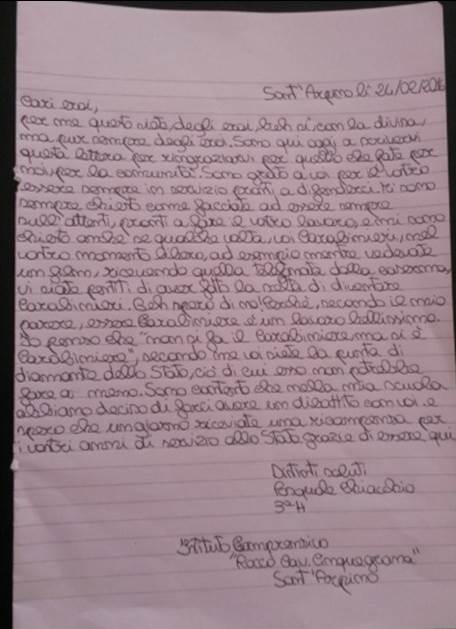 Sant'Arpino lì 24/02/2016
Cari eroi,
per me questo siete, degli eroi, beh sì con la divisa,
ma pur sempre degli eroi. Sono qui oggi a scrivervi
questa lettera per ringraziarvi per quello che fate per
noi, per la comunità. Sono grato a voi per il vostro
essere sempre in servizio pronti a difenderci. Mi sono
sempre chiesto come facciate ad essere sempre
sull'attenti, pronti a fare il vostro lavoro, e mi sono
chiesto anche se qualche volta, voi Carabinieri, nel
vostro momento libero, ad esempio mentre vedevate
un film, ricevendo quella telefonata dalla caserma,
vi siate pentiti di aver fatto la scelta di diventare
Carabinieri. Beh spero di no! Perché, secondo il mio
parere, essere Carabiniere è un lavoro bellissimo.
Io penso che "non si fa il Carabiniere, ma si è
Carabiniere", secondo me voi siete la punta di
diamante dello Stato, ciò di cui esso non potrebbe
fare a meno. Sono contento che nella mia scuola
abbiamo deciso di farci avere un dibattito con voi e
spero che un giorno riceviate una ricompensa per
i vostri anni di servizio allo Stato grazie di essere qui
Distinti saluti
Pasquale Chiacchio
3ª H
Istituto Comprensivo
"Rocco Cav. Cinquegrana"
Sant'Arpino